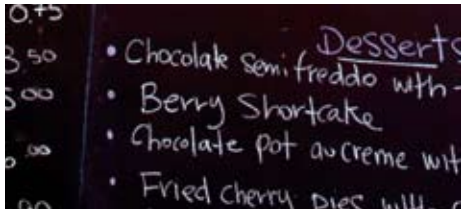 0.75
Desserts
3.50
• Chocolate Semifreddo with
5.00
• Berry Shortcake
.00
• Chocolate pot au creme wit
• Fried cherry pies with
.00